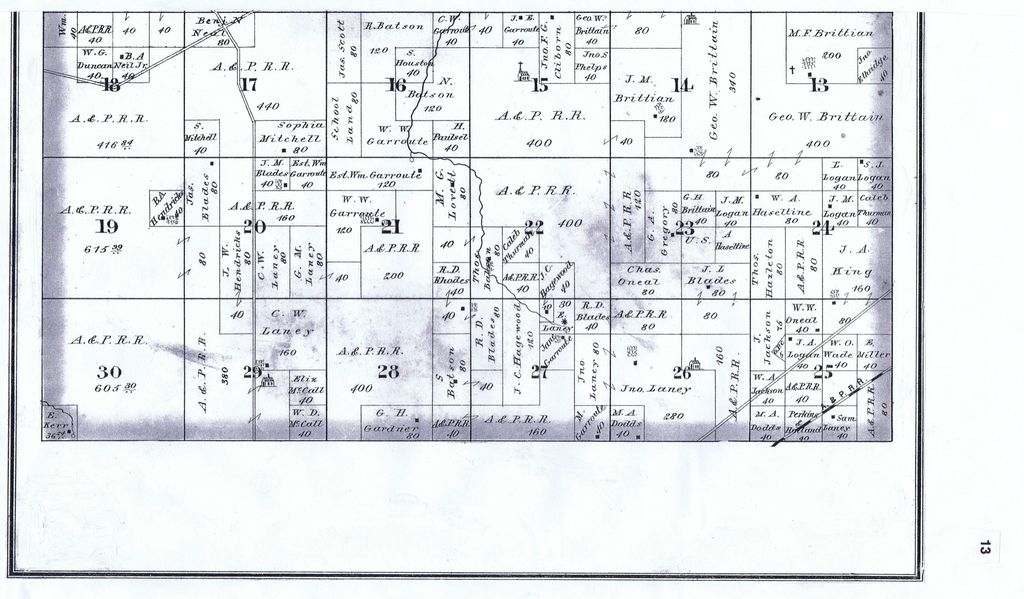 Wm.
A&P.R.R.
40
40
40
Benj. N
Neal
80
W.G.
Duncan
40
B.A
Neil Jr.
40
18
A.&P.R.R.
416 84
A.&P.R.R.
17
440
S.
Mitchell
40
Sophia
Mitchell
80
Jas. Scott
80
R.Batson
120
S.
Houston
40
16
School
Land 80
N.
Batson
120
W. W.
Garroute
H.
40
C.W.
Garroute
40
J. E.
Garroute
40
Jno.F.G.
Cliborn
80
Geo.W.
Brittain
40
Jno.S
Phelps
40
15
A.&P.R.R.
400
80
J. M.
Brittian
180
14
40
Geo. W. Brittain
340
M.F.Brittian
200
Jno
40
13
Geo. W. Brittain
400
A.&P.R.R.
19
615 30
B.A.
Hendricks
40
Jas.
Blades
80
80
J. M.
Blades
40
Est.Wm
Garroute
40
A.&P.R.R.
160
20
J. W.
Hendricks
C. W.
Laney
80
G. M.
Laney
80
40
Est.Wm.Garroute
120
W. W.
Garroute
120
21
A.&P.R.R
200
M. G.
Lovett
80
40
R.D.
Rhodes
40
Thos.
Batson
80
Caleb
Thurman
40
A.&P.R.R.
22
400
A&P.R.R.
40
J.C
Hagewood
40
A.&P.R.R
120
G. A.
Gregory
80
G.H
Brittain
40
J.M.
Logan
40
23
U.S.
A
Haseltine
Chas.
Oneal
80
J. L
Blades
80
80
80
L.
Logan
40
S.J.
Logan
40
W. A.
Haseltine
80
J. M.
Logan
40
Caleb
Thurman
40
24
Thos.
Hazleton
80
A.&P.R.R
80
J. A.
King
160
A.&P.R.R.
30
605 30
E.
Kerr
A.&P.R.R.
380
40
C. W.
Laney
160
29
Eliz
McCall
40
W. D.
McCall
40
A.&P.R.R.
28
400
G. H
Gardner
80
40
S
Batson
R. D.
Blades
80
40
A&P.RR
40
J. C. Hagewood
120
30
E.
Laney
James
Garroute
27
A.&P.R.R.
160
R.D.
Blades
40
Jno
Laney 80
M.
Garroute
40
A.&P.R.R
80
80
26
Jno. Laney
280
M.A
Dodds
40
160
A.&P.R.R.
J.
Jackson
75
W.W.
Oneal
40
80
J.A.
Logan
40
W.O.
Wade
40
E.
Miller
40
25
W.A
Jackson
40
A&P.R.R.
40
A.&P.R.R.
M. A.
Dodds
40
Perkins
&
Rutland
40
Sam
Laney
40
A.&P.R.R.
80
13